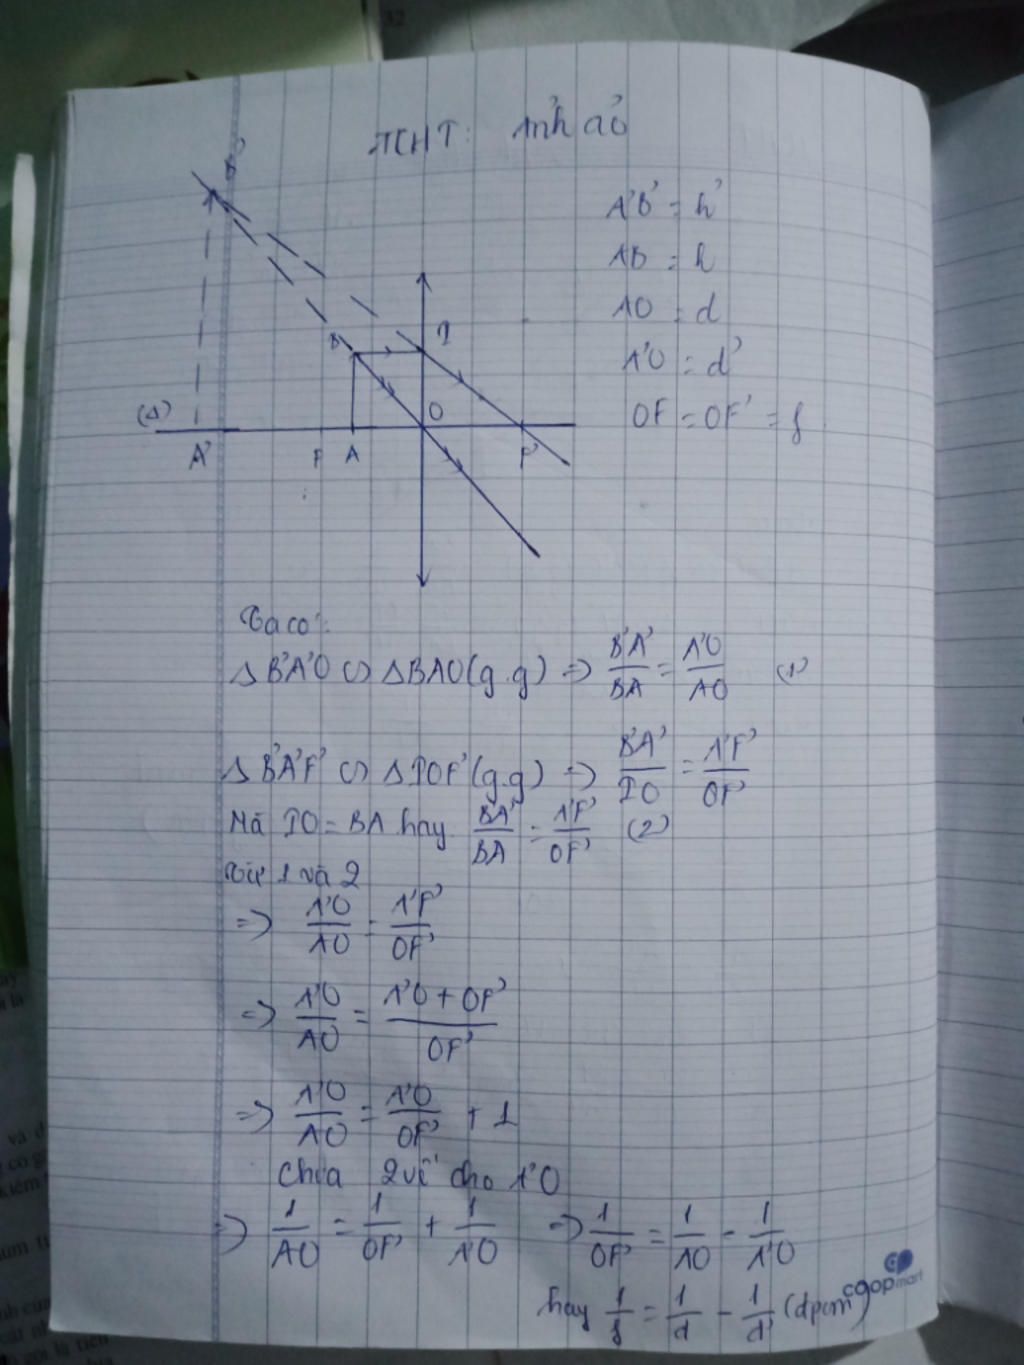 32
TCHT: Ảnh ảo
A'B' = h'
AB = h
AO = d
A'O = d'
OF = OF' = f
B'
B
I
(Δ)
O
A'
F
A
F'
Ta có:
Δ B'A'O ∽ Δ BAO (g.g) => B'A'/BA = A'O/AO (1)
Δ B'A'F' ∽ Δ IOF' (g.g) => B'A'/IO = A'F'/OF'
Mà IO = BA hay BA'/BA = A'F'/OF' (2)
Từ 1 và 2
=> A'O/AO = A'F'/OF'
=> A'O/AO = A'O + OF'/OF'
=> A'O/AO = A'O/OF' + 1
Chia 2 vế cho A'O
=> 1/AO = 1/OF' + 1/A'O => 1/OF' = 1/AO - 1/A'O
hay 1/f = 1/d - 1/d' (dpcm)
coopmart